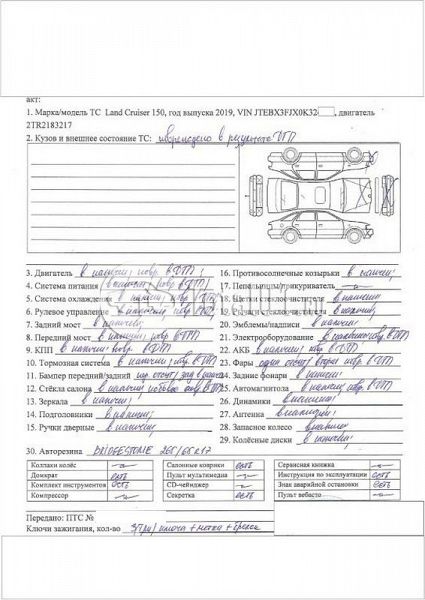 акт:
1. Марка/модель ТС Land Cruiser 150, год выпуска 2019, VIN JTEBX3FJX0K32, двигатель
2TR2183217
2. Кузов и внешнее состояние ТС: повреждено в результате ДТП
3. Двигатель в наличии, повр. в ДТП;
4. Система питания в наличии, повр. в ДТП;
5. Система охлажден. в наличии, повр. в ДТП;
6. Рулевое управление в наличии, повр. в ДТП;
7. Задний мост в наличии;
8. Передний мост в наличии, повр. в ДТП;
9. КПП в наличии, повр. в ДТП;
10. Тормозная система в наличии, повр. в ДТП;
11. Бампер передний/задний пер отсут/зад в
12. Стёкла салона в наличии, лобовое в ДТП;
13. Зеркала в наличии;
14. Подголовники в наличии;
15. Ручки дверные в наличии;
16. Противосолнечные козырьки в наличии;
17. Пепельница/прикуриватель
18. Щетки стеклоочистителя в наличии;
19. стеклоочистителя в наличии;
20. Эмблемы/надписи в наличии;
21. Электроборудование в наличии, повр. в ДТП
22. АКБ в наличии, повр. в ДТП;
23. Фары один отсут, второй повр. в ДТП
24. Задние фонари в наличии;
25. Автомагнитола в наличии, повр. в ДТП
26. Динамики в наличии;
27. Антенна в наличии;
28. Запасное колесо в наличии;
29. Колёсные диски в наличии;
30. Авторезина BRIDGESTONE 265/65 R17
Коллаки колёс Салонные коврики есть Сервисная книжка
Домкрат есть Пульт мультимедиа Инструкция по эксплуатации есть
Комплект инструментов есть CD-чейнджер Знак аварийной остановки есть
Компрессор Секретка есть Пульт вебасто
Передано: ПТС №
Ключи зажигания, кол-во три/ключа + метки + брелок